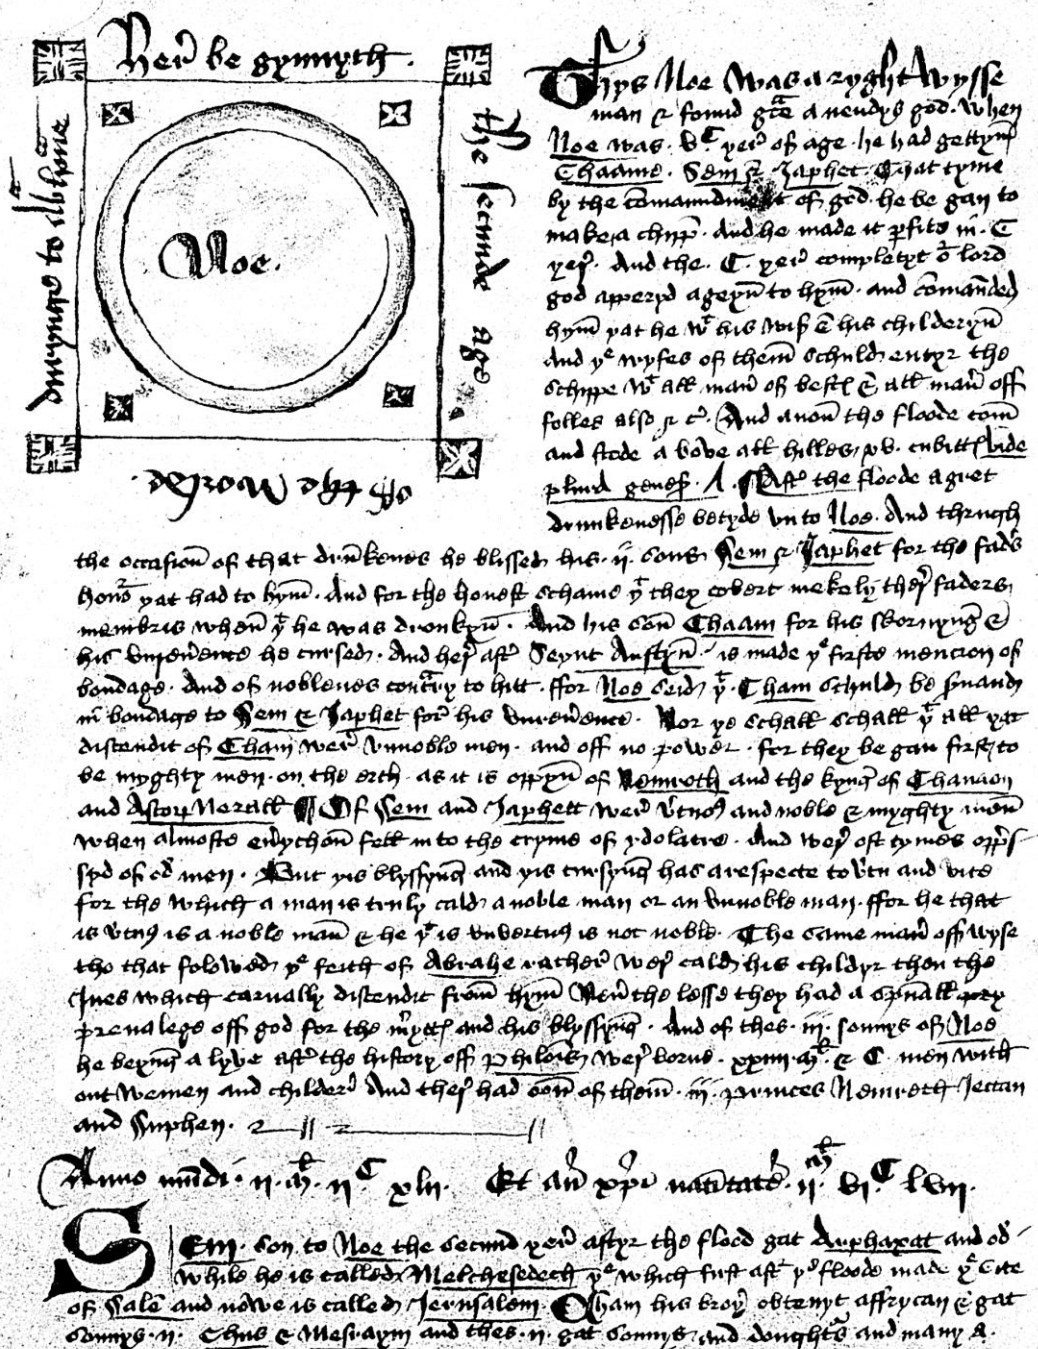 Her be gynnyth .
the secunde age
of the World .
durynge to
Noe .
Thys Noe was a ryght wysse
man & found gce a nendys god . When
Noe was . vC yer of age . he had gettyn
Chaame . Sem & Japhet . That tyme
by the comaundment of god . he be gan to
make a chypp . And he made it pfite in . C
yer . And the . C . yer completyt lord
god apperyd ageyn to hym . and comanded
hym yat he wt his wif & his childeryn
And ye wyfes of them schuld entyr the
schippe wt all man of best & all man off
folles also & c . And anon the floode com
and stode a bove all hilles xv . cubitt vide
plura genes . Aft the floode a gret
drunkenesse betyde vn to Noe . And thrugh
the occasion of that drunkenes he blissed his . ij . sons Sem & Japhet for the fads
hono yat had to hym . And for the honest schame yt they covert mekely ther faders
membris when yt he was dronkyn . And his son Chaam for his skornyng &
his vnreuerence he cursed . And her aft Seynt Austyn . is made ye firste mencion of
bondage . And of noblenes contrary to hitt . ffor Noe seid yt . Cham schuld be suand
in bondage to Sem & Japhet for his vnreuerence . Nor ye schall schall yt all yat
discendit of Cham wer vnnoble men . and off no power . for they be gan first to
be myghty men . on the erth . as it is oppyn of Nemroth and the kyng of Chanaon
and Of Sem and Japhett wer vtuos and noble & myghty men
when almoste euerychon fell in to the cryme of ydolatre . And wer oft tymes oppres-
syd of od men . But yis blyssyng and yis cursyng has a respecte to vtu and vice
for the which a man is truly cald a noble man or an vnnoble man . ffor he that
is vtuos is a noble man & he yt is vnvertuos is not noble . The same maner off wyse
tho that folowed ye feith of Abrahe rather wer cald his childyr then the
Jues which carnally discendit from hym Neu the lesse they had a spuall
preualege off god for the mytt and his blyssyng . And of thes . iij . sonnys of Noe
he beyng a lyve aft the history off Philois wer borne . xxiiij . Ml & C . men with
out wemen and childer And ther had son of them . iij . princes Nemroth Jectan
and Suphen .
Anno mundi . ii . Ml . iiC xlii . Et an xpi natitate . ii . Ml viC lvii .
SEm . son to Noe the secund yer aftyr the flood gat Arphaxat and od
while he is called Melchesedech ye which first aft ye floode made ye Cite
of Salem and nowe is called Jerusalem . Cham his broy obtenyt affrycan & gat
sonnys . ii . Chus & Mesraym and thes . ii . gat sonnys and doughts and many a .